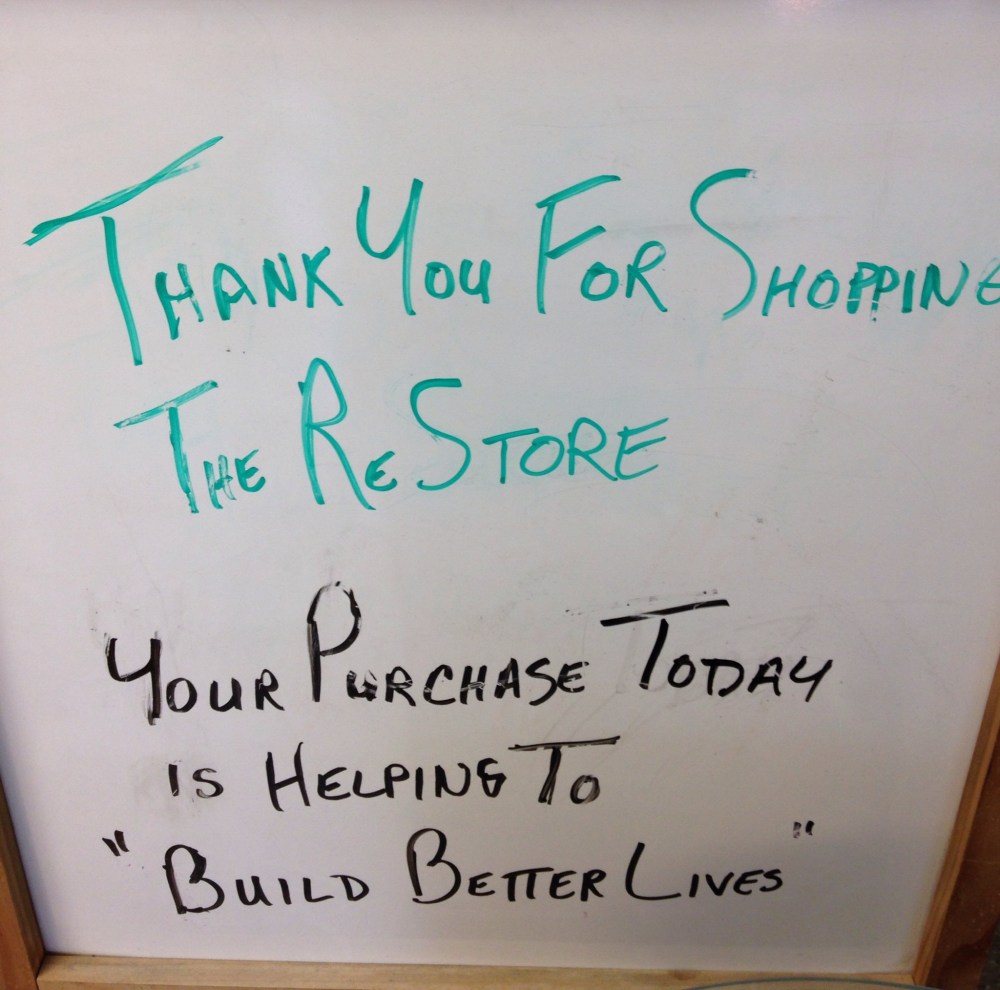 Thank You For Shopping
The ReStore
Your Purchase Today
is Helping To
"Build Better Lives"